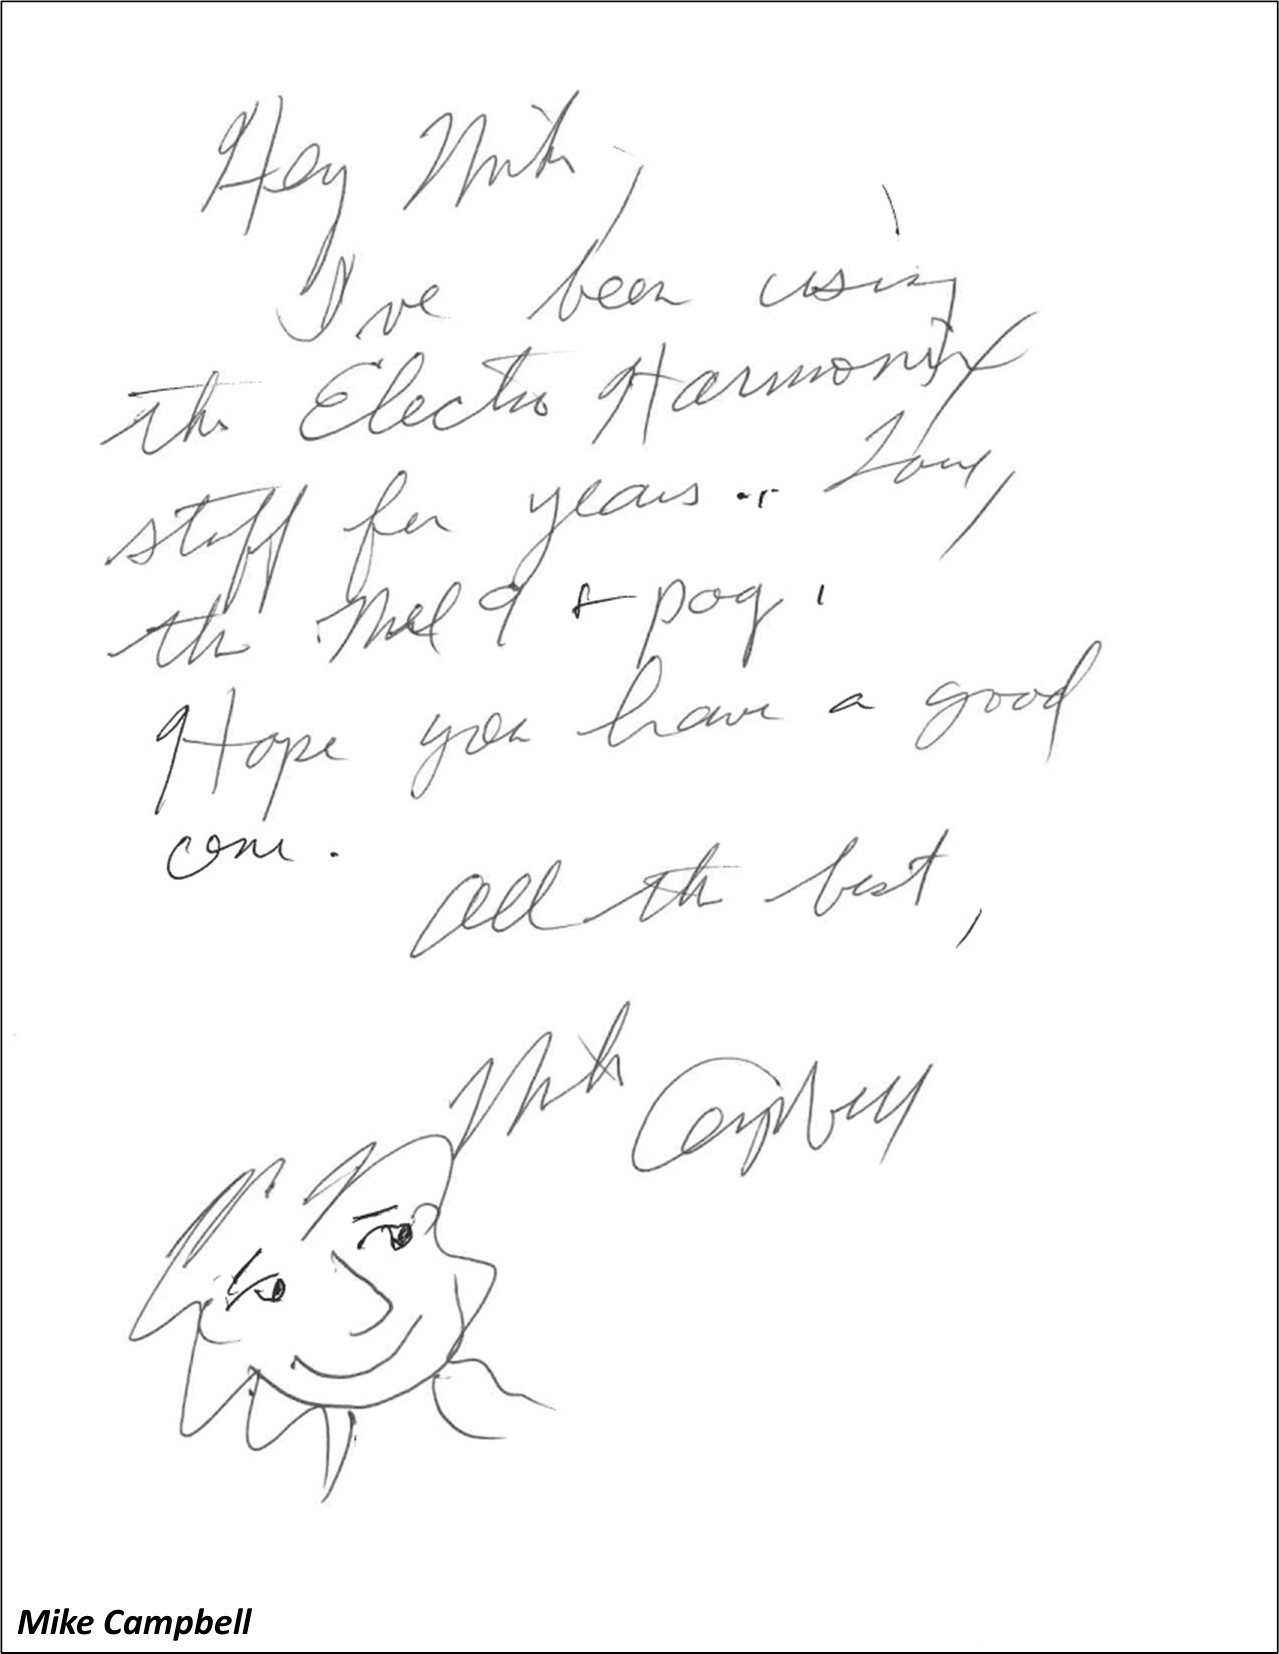 Hey Mike,
I've been using
the Electro Harmonix
stuff for years .. Love,
the Mel 9 + pog.
Hope you have a good
one.
All the best,
Mike Campbell
Mike Campbell